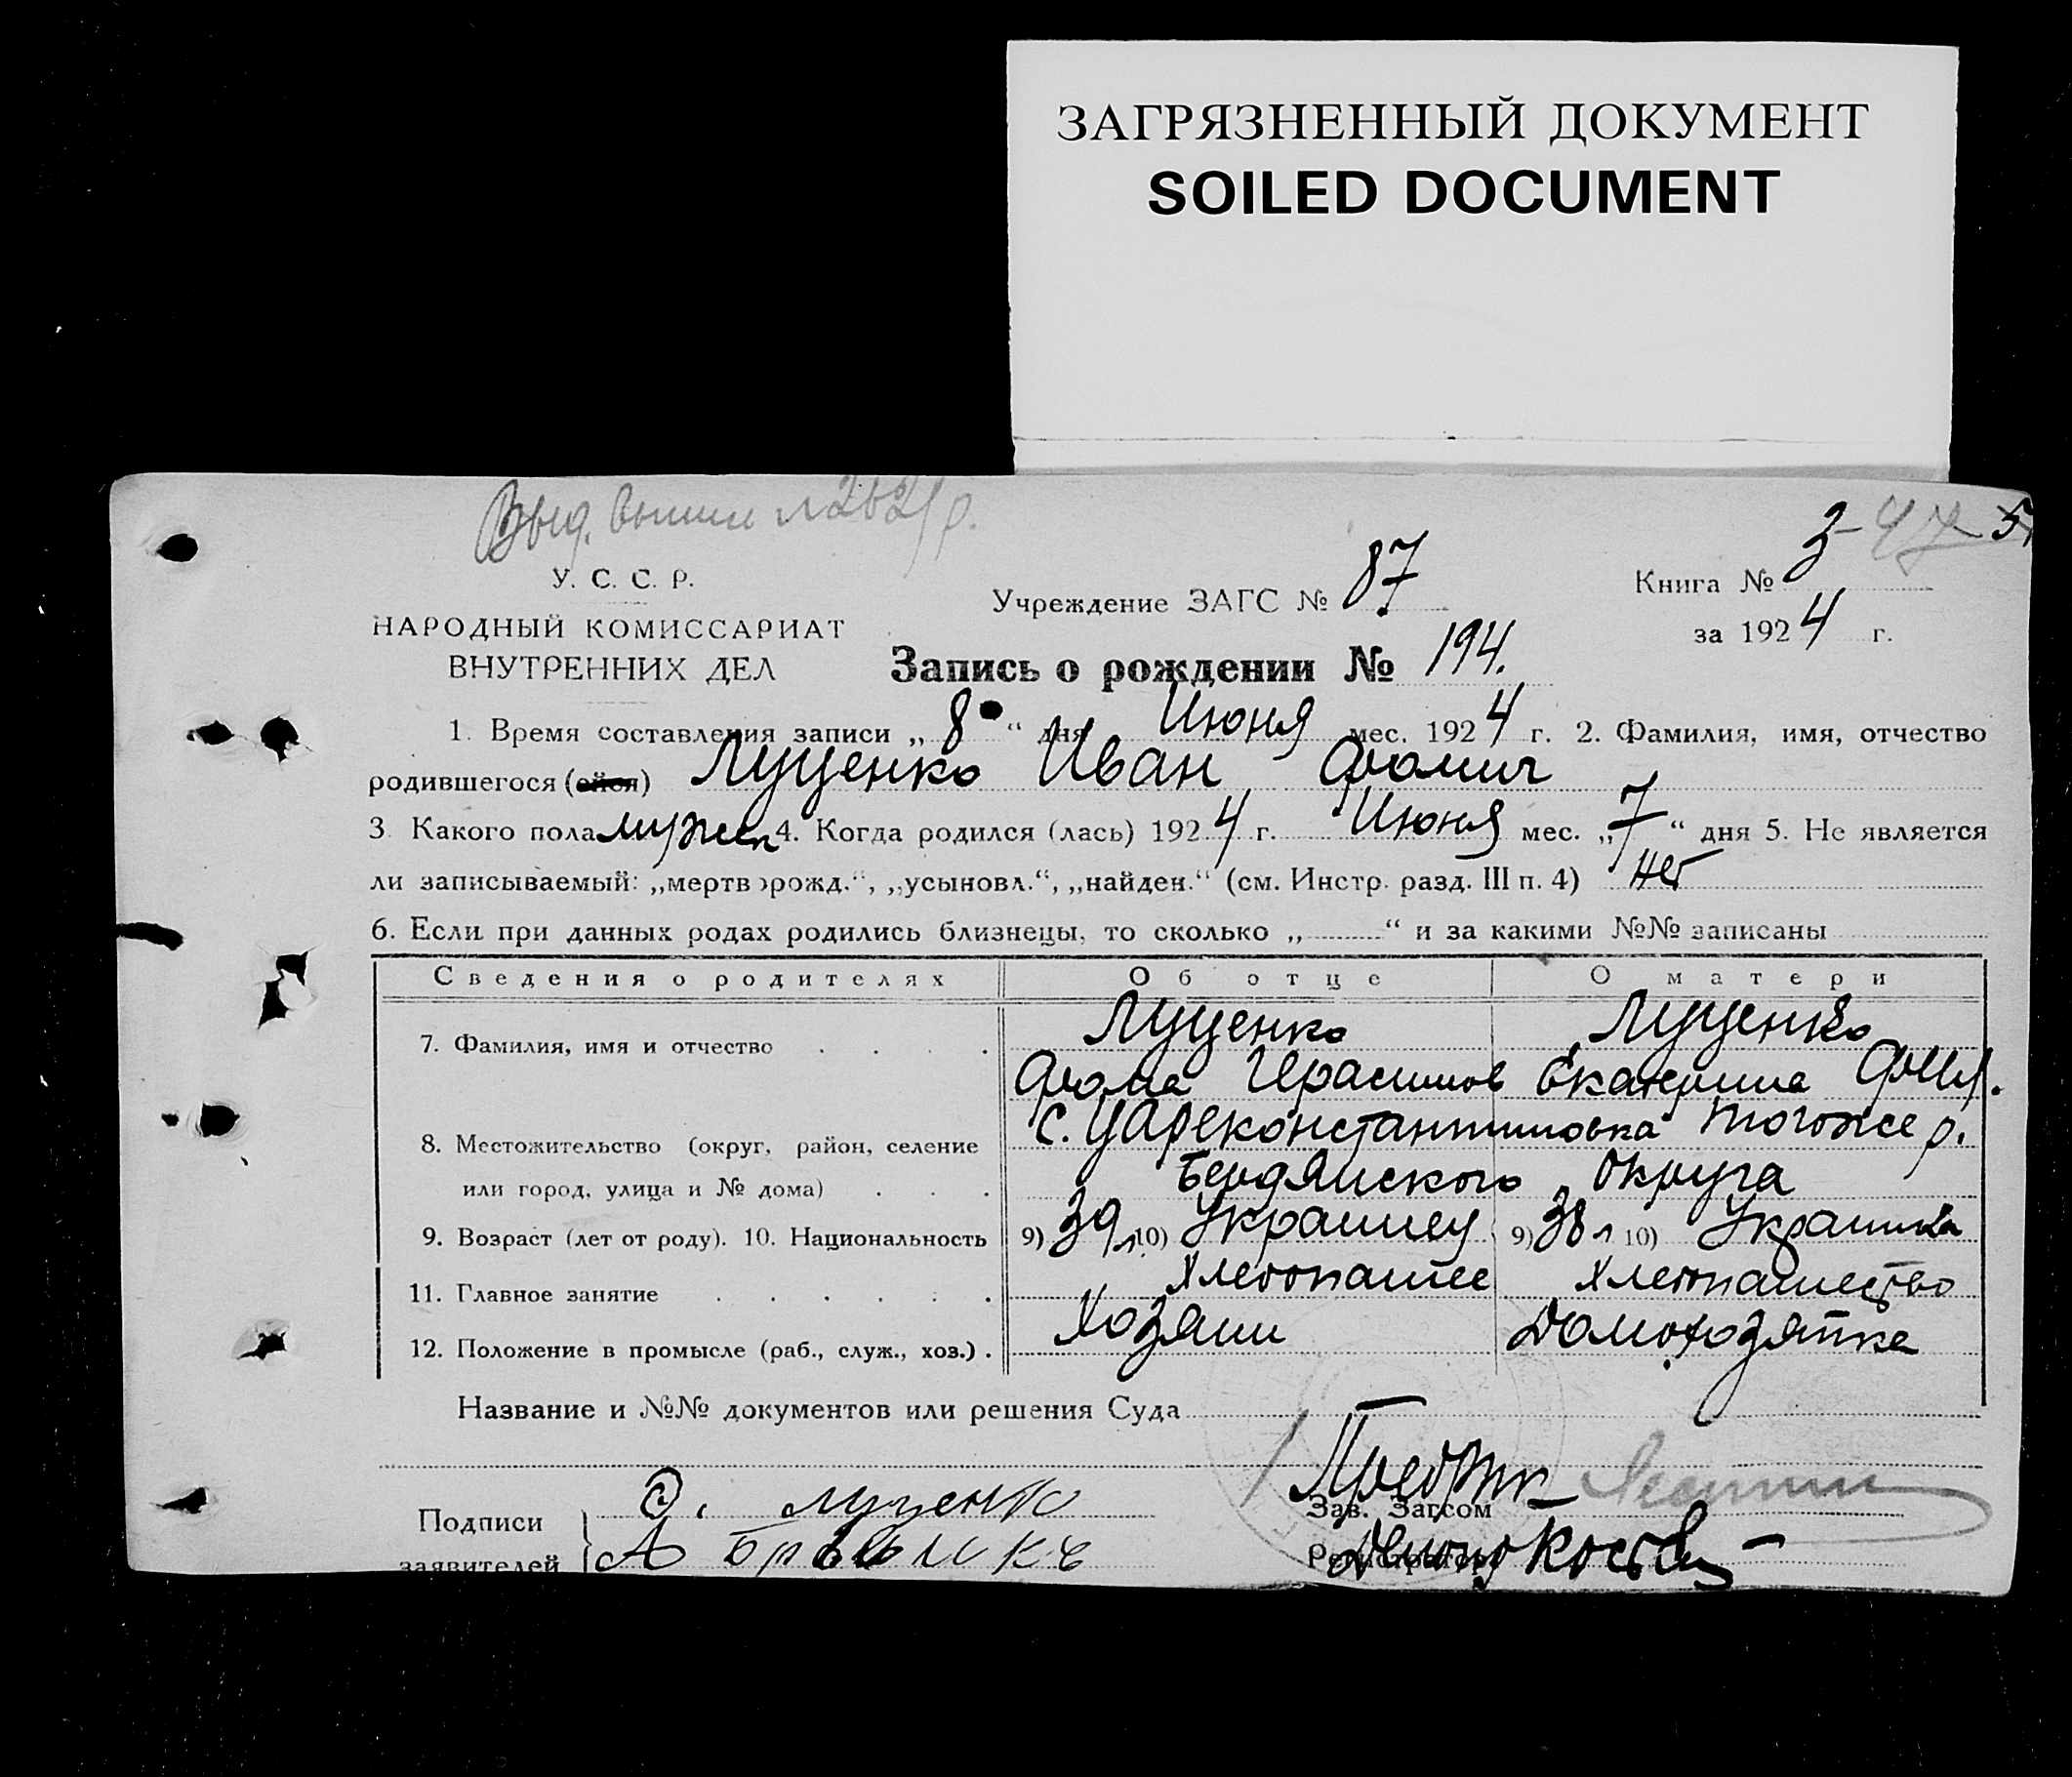 ЗАГРЯЗНЕННЫЙ ДОКУМЕНТ
SOILED DOCUMENT
Выд.
3 - 47 5
У. С. С. Р.
Учреждение ЗАГС № 87
Книга №
НАРОДНЫЙ КОМИССАРИАТ
за 1924 г.
ВНУТРЕННИХ ДЕЛ
Запись о рождении № 194.
1. Время составления записи „ 8 “ дня Июня мес. 1924 г. 2. Фамилия, имя, отчество
родившегося (ейся) Луценко Иван Фомич
3. Какого пола мужск 4. Когда родился (лась) 1924 г. Июня мес. „ 7 “ дня 5. Не является
ли записываемый: „мертворожд.“, „усыновл.“, „найден.“ (см. Инстр. разд. III п. 4) нет
6. Если при данных родах родились близнецы, то сколько „ “ и за какими №№ записаны
Сведения о родителях Об отце О матери
Луценко Луценко
7. Фамилия, имя и отчество
Фома Герасимов Екатерина
с. Цареконстантиновка тогоже р.
8. Местожительство (округ, район, селение
или город, улица и № дома) Бердянского Округа
9. Возраст (лет от роду). 10. Национальность 9) 39 л 10) Украинец 9) 38 л 10) Украинка
11. Главное занятие Хлебопашес Хлебопашество
12. Положение в промысле (раб., служ., хоз.) Хозяин Домохозяйка
Название и №№ документов или решения Суда
Подписи
заявителей
Луценко
А
Зав. Загсом